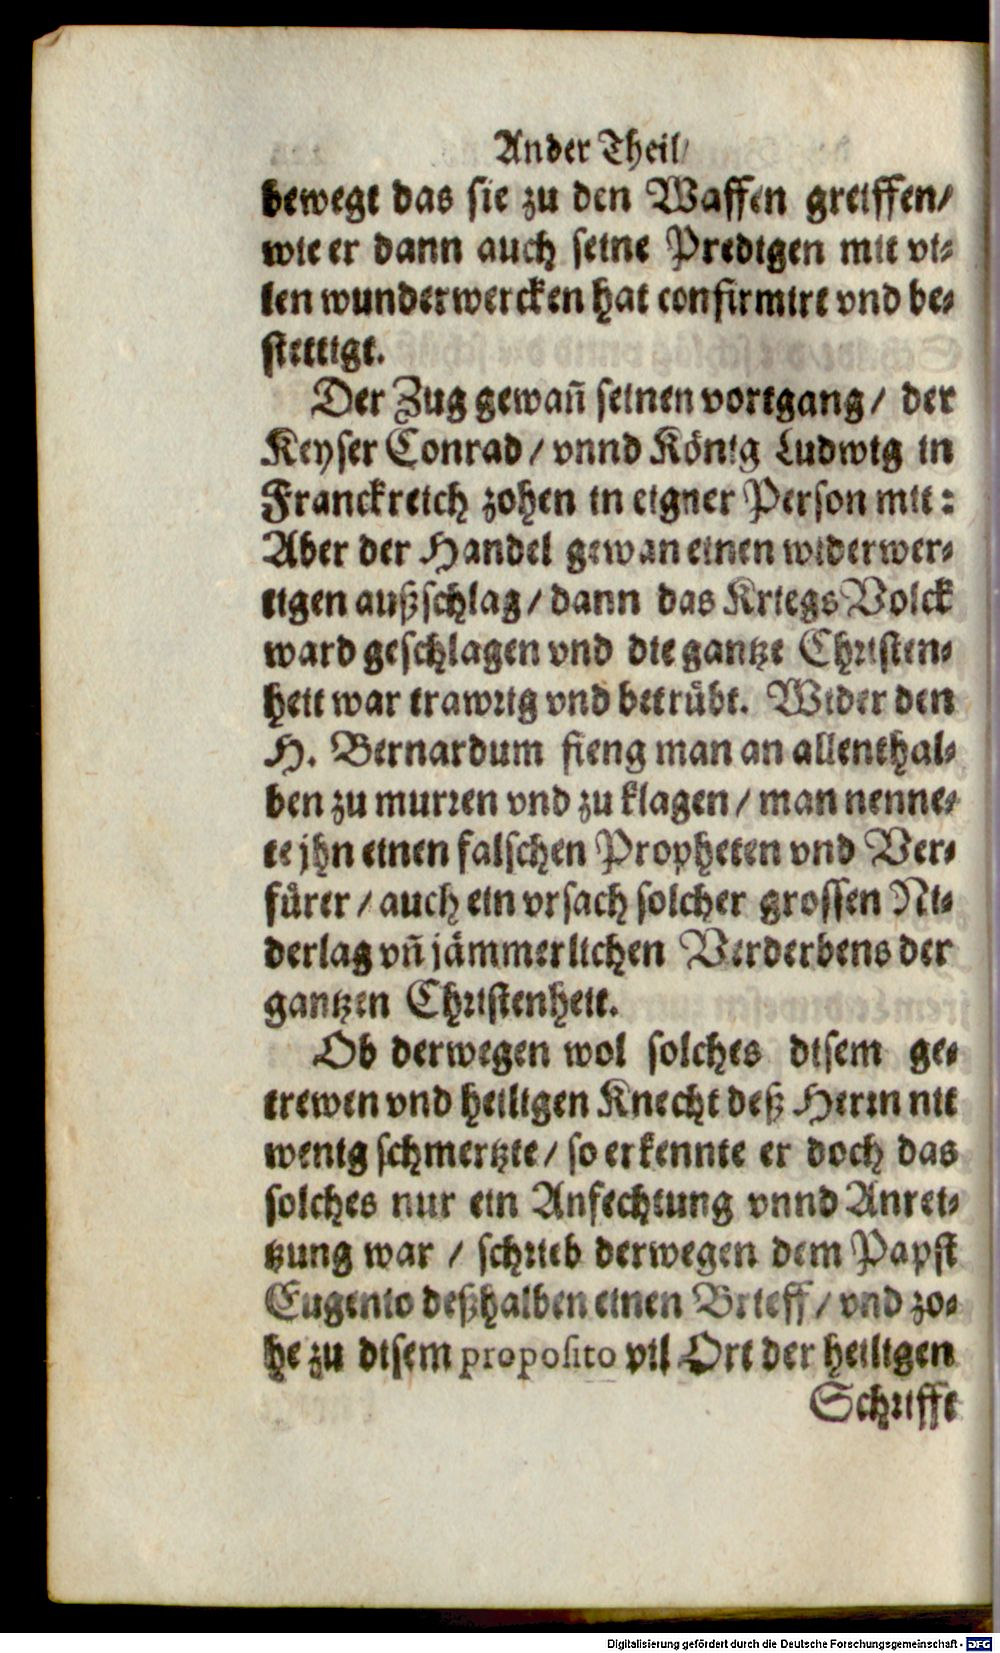 Ander Theil/
bewegt das sie zu den Waffen greiffen/
wie er dann auch seine Predigen mit vi-
len wunderwercken hat confirmirt vnd be-
stettigt.
Der Zug gewañ seinen vortgang / der
Keyser Conrad / vnnd König Ludwig in
Franckreich zohen in eigner Person mit:
Aber der Handel gewan einen widerwer-
tigen außschlag / dann das Kriegs Volck
ward geschlagen vnd die gantze Christen-
heit war trawrig vnd betrübt. Wider den
H. Bernardum fieng man an allenthal-
ben zu murren vnd zu klagen / man nenne-
te jhn einen falschen Propheten vnd Ver-
fürer / auch ein vrsach solcher grossen Ni-
derlag vñ jämmerlichen Verderbens der
gantzen Christenheit.
Ob derwegen wol solches disem ge-
trewen vnd heiligen Knecht deß Herrn nit
wenig schmertzte / so erkennte er doch das
solches nur ein Anfechtung vnnd Anrei-
tzung war / schrieb derwegen dem Papst
Eugenio deßhalben einen Brieff / vnd zo-
he zu disem proposito vil Ort der heiligen
Schrifft
Digitalisierung gefördert durch die Deutsche Forschungsgemeinschaft - DFG